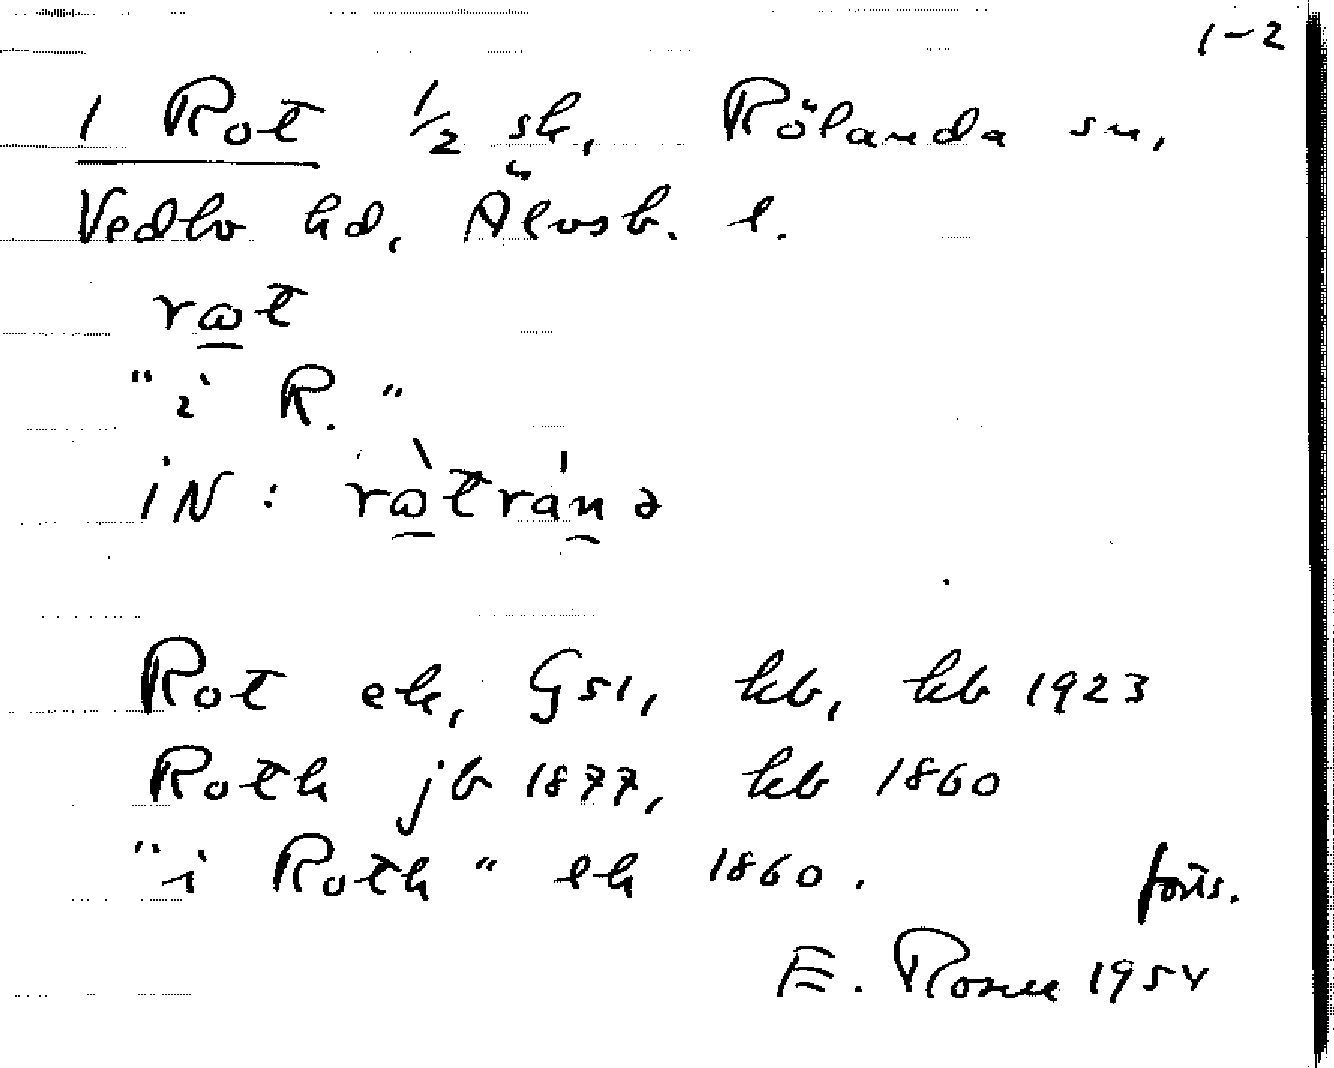 1-2
1 Rot 1/2 sk, Rölanda sn,
Vedbo hd, Älvsb. l.
rɷt
"i R."
iN: rɷ̀tránə
Rot ek, Gs1, kb, kb 1923
Roth jb 1877, kb 1860
"i Roth" ek 1860.
forts.
E. 1954